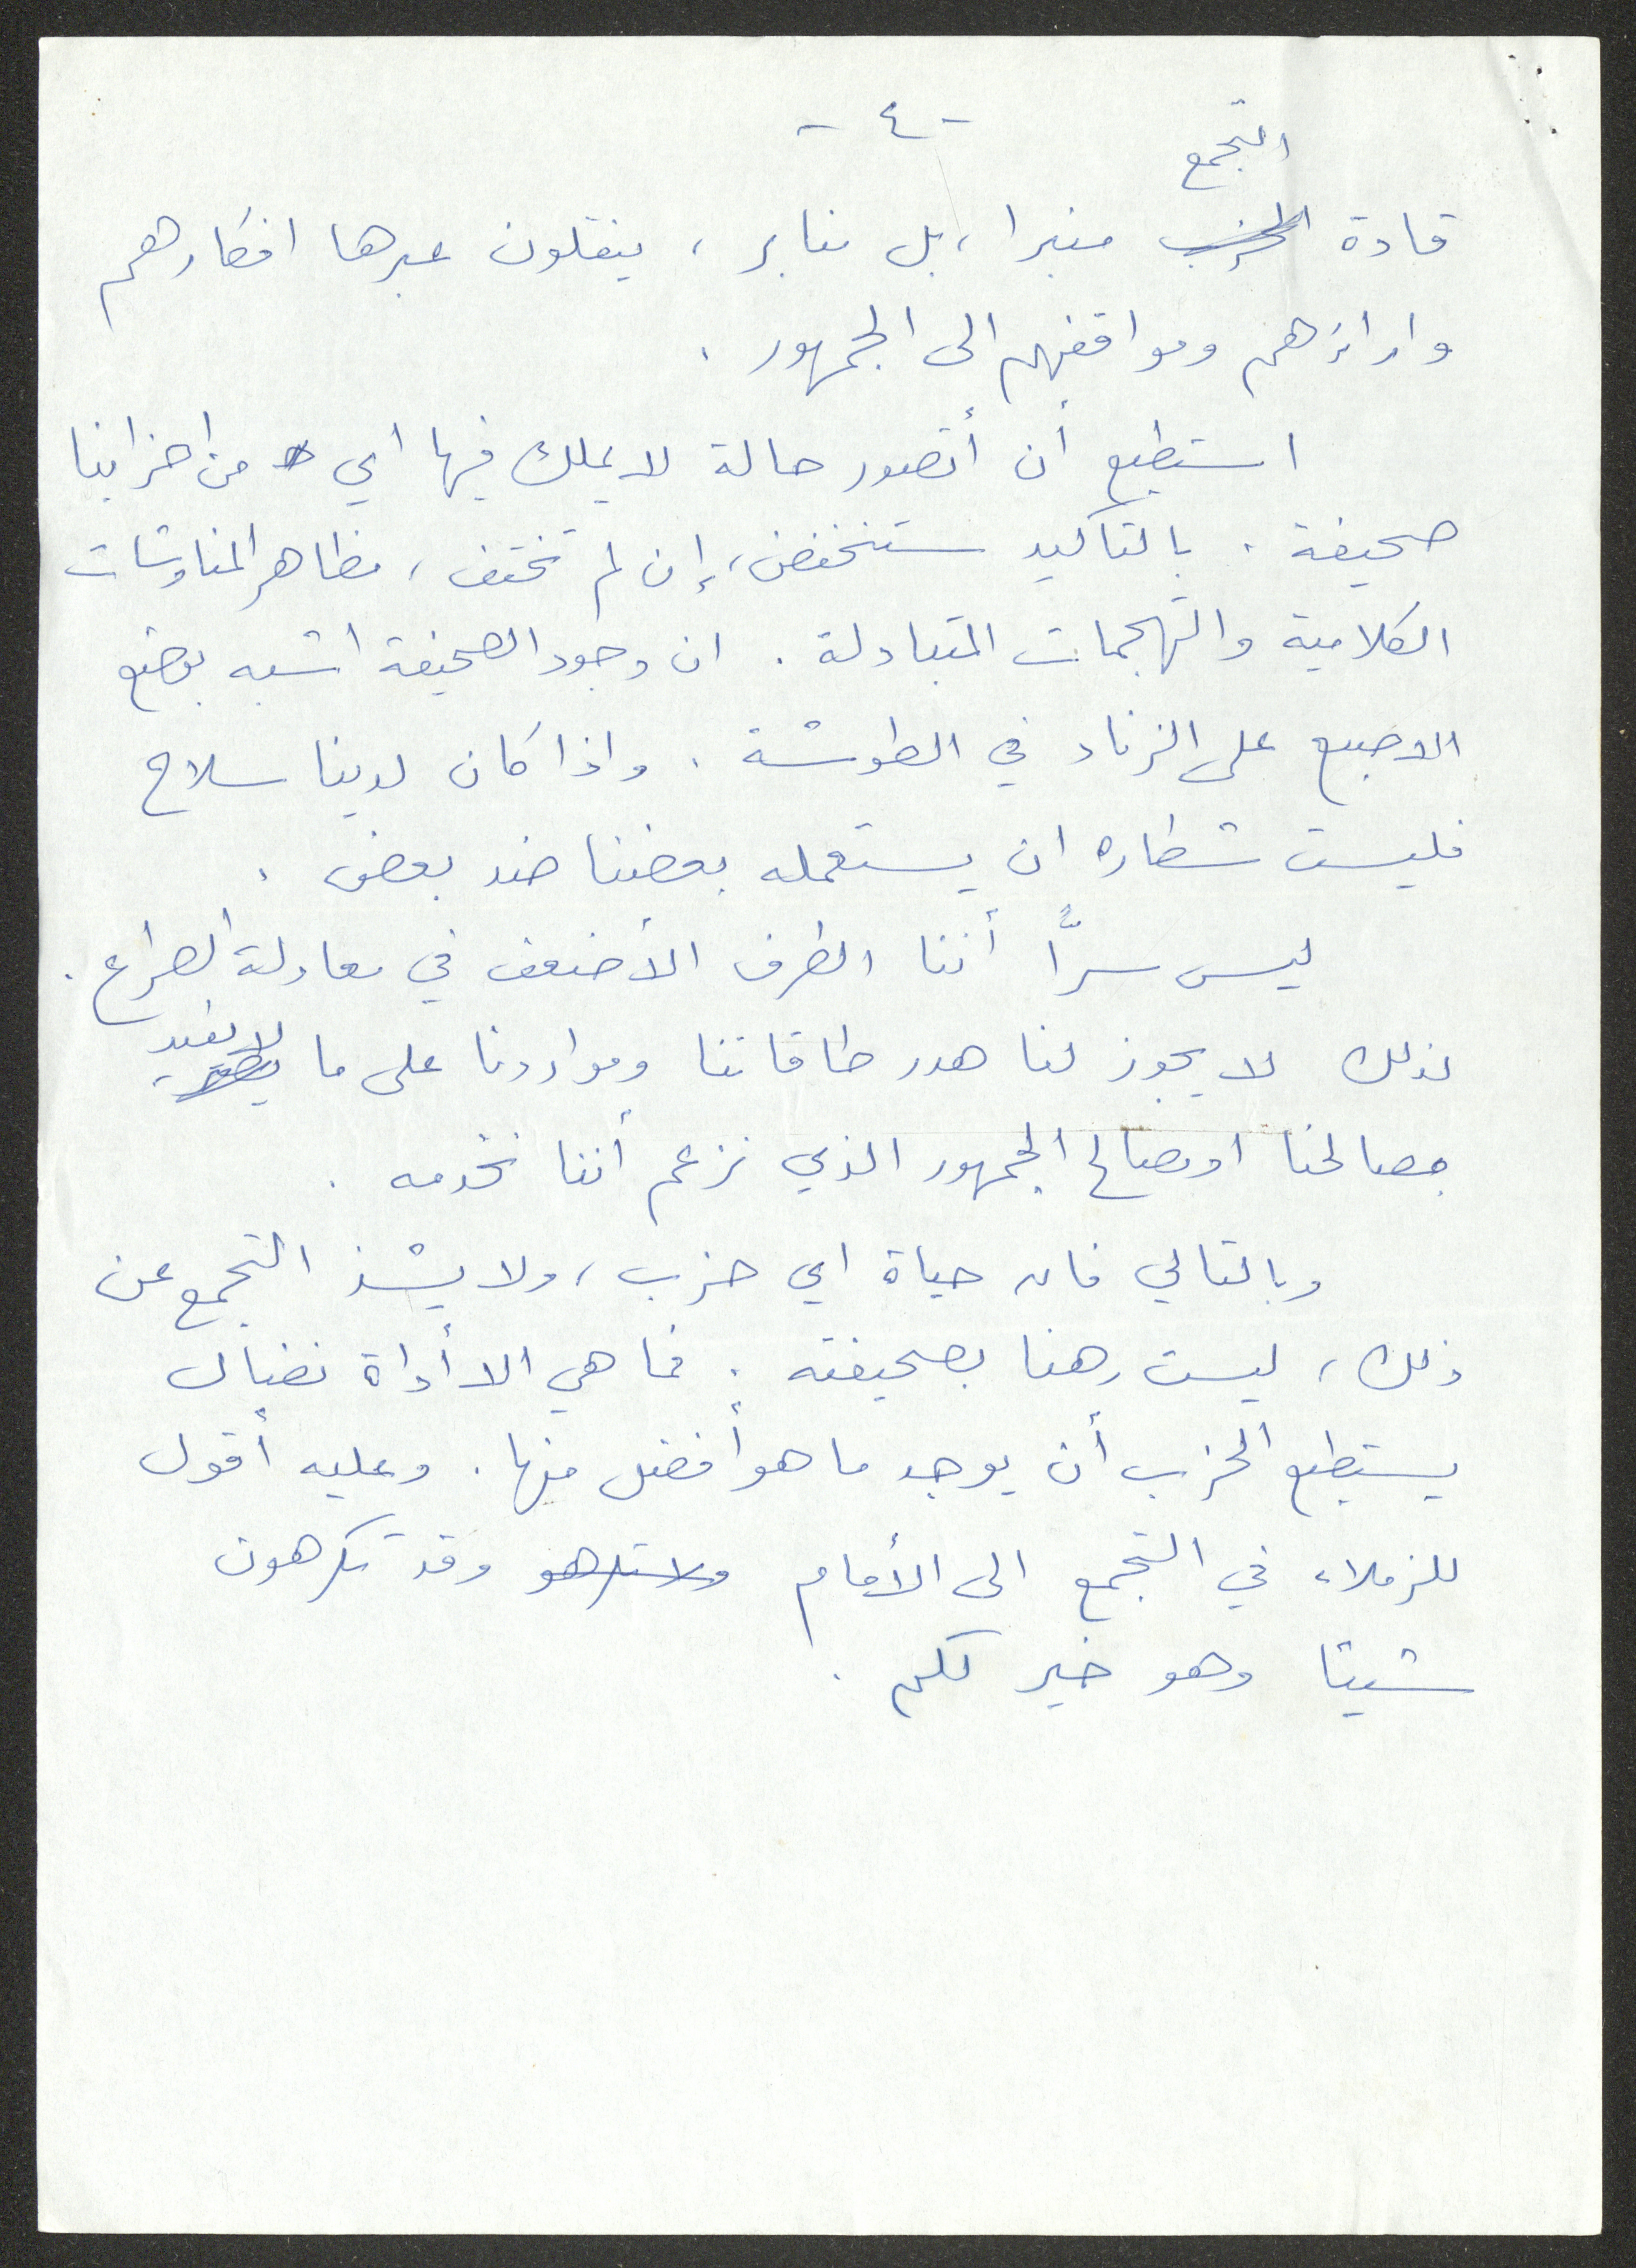 - ٤ -
التجمع
قادة الحزب منبرا، بل منابر، ينقلون عبرها افكارهم
واراءهم ومواقفهم الى الجمهور.
استطيع أن أتصور حالة لا يملك فيها اي من احزابنا
صحيفة. بالتاكيد ستنخفض، إن لم تختف، مظاهر المناوشات
الكلامية والتهجمات المتبادلة. ان وجود الصحيفة اشبه بوضع
الاصبع على الزناد في الطوشة. واذا كان لدينا سلاح
فليست شطاره ان يستعمله بعضنا ضد بعض.
ليس سرًّا أننا الطرف الأضعف في معادلة الصراع.
لا يفيد
لذلك لا يجوز لنا هدر طاقاتنا ومواردنا على ما
مصالحنا او مصالح الجمهور الذي نزعم أننا نخدمه.
وبالتالي فان حياة اي حزب، ولا يشذ التجمع عن
ذلك، ليست رهنا بصحيفته. فما هي الا أداة نضال
يستطيع الحزب أن يوجد ما هو أفضل منها. وعليه أقول
للزملاء في التجمع الى الأمام وقد تكرهون
شيئا وهو خير لكم.